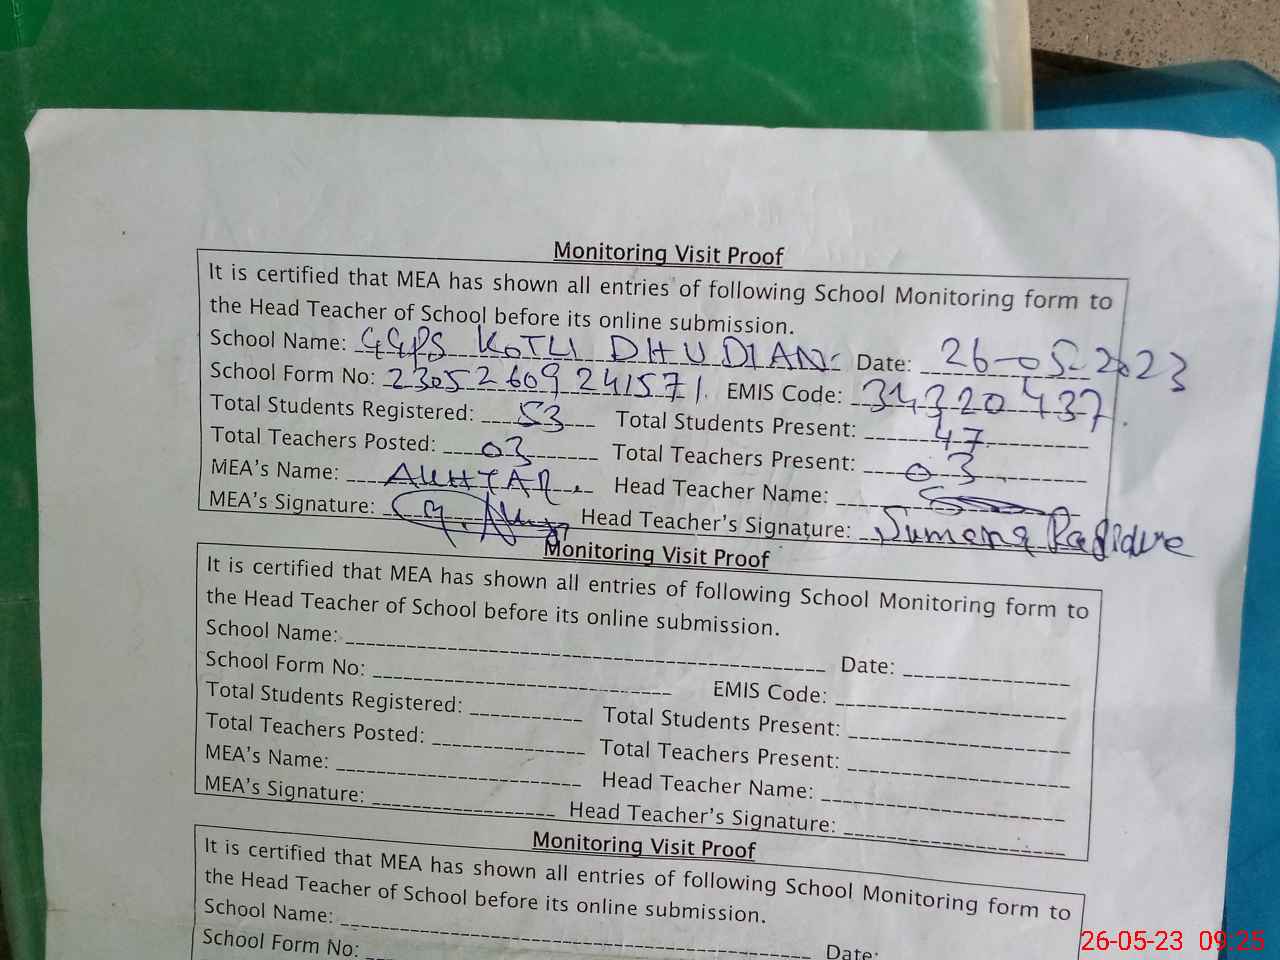 Monitoring Visit Proof
It is certified that MEA has shown all entries of following School Monitoring form to
the Head Teacher of School before its online submission.
School Name: GGPS KOTLI DHUDIAN Date: 26-05-2023
School Form No: 23052609241571 EMIS Code: 34320437
Total Students Registered: 53 Total Students Present: 47
Total Teachers Posted: 03 Total Teachers Present: 03
MEA's Name: AKHTAR Head Teacher Name:
MEA's Signature: Head Teacher's Signature: Sumena
Monitoring Visit Proof
It is certified that MEA has shown all entries of following School Monitoring form to
the Head Teacher of School before its online submission.
School Name: Date:
School Form No: EMIS Code:
Total Students Registered: Total Students Present:
Total Teachers Posted: Total Teachers Present:
MEA's Name: Head Teacher Name:
MEA's Signature: Head Teacher's Signature:
Monitoring Visit Proof
It is certified that MEA has shown all entries of following School Monitoring form to
the Head Teacher of School before its online submission.
School Name: Date:
School Form No:
26-05-23 09:25